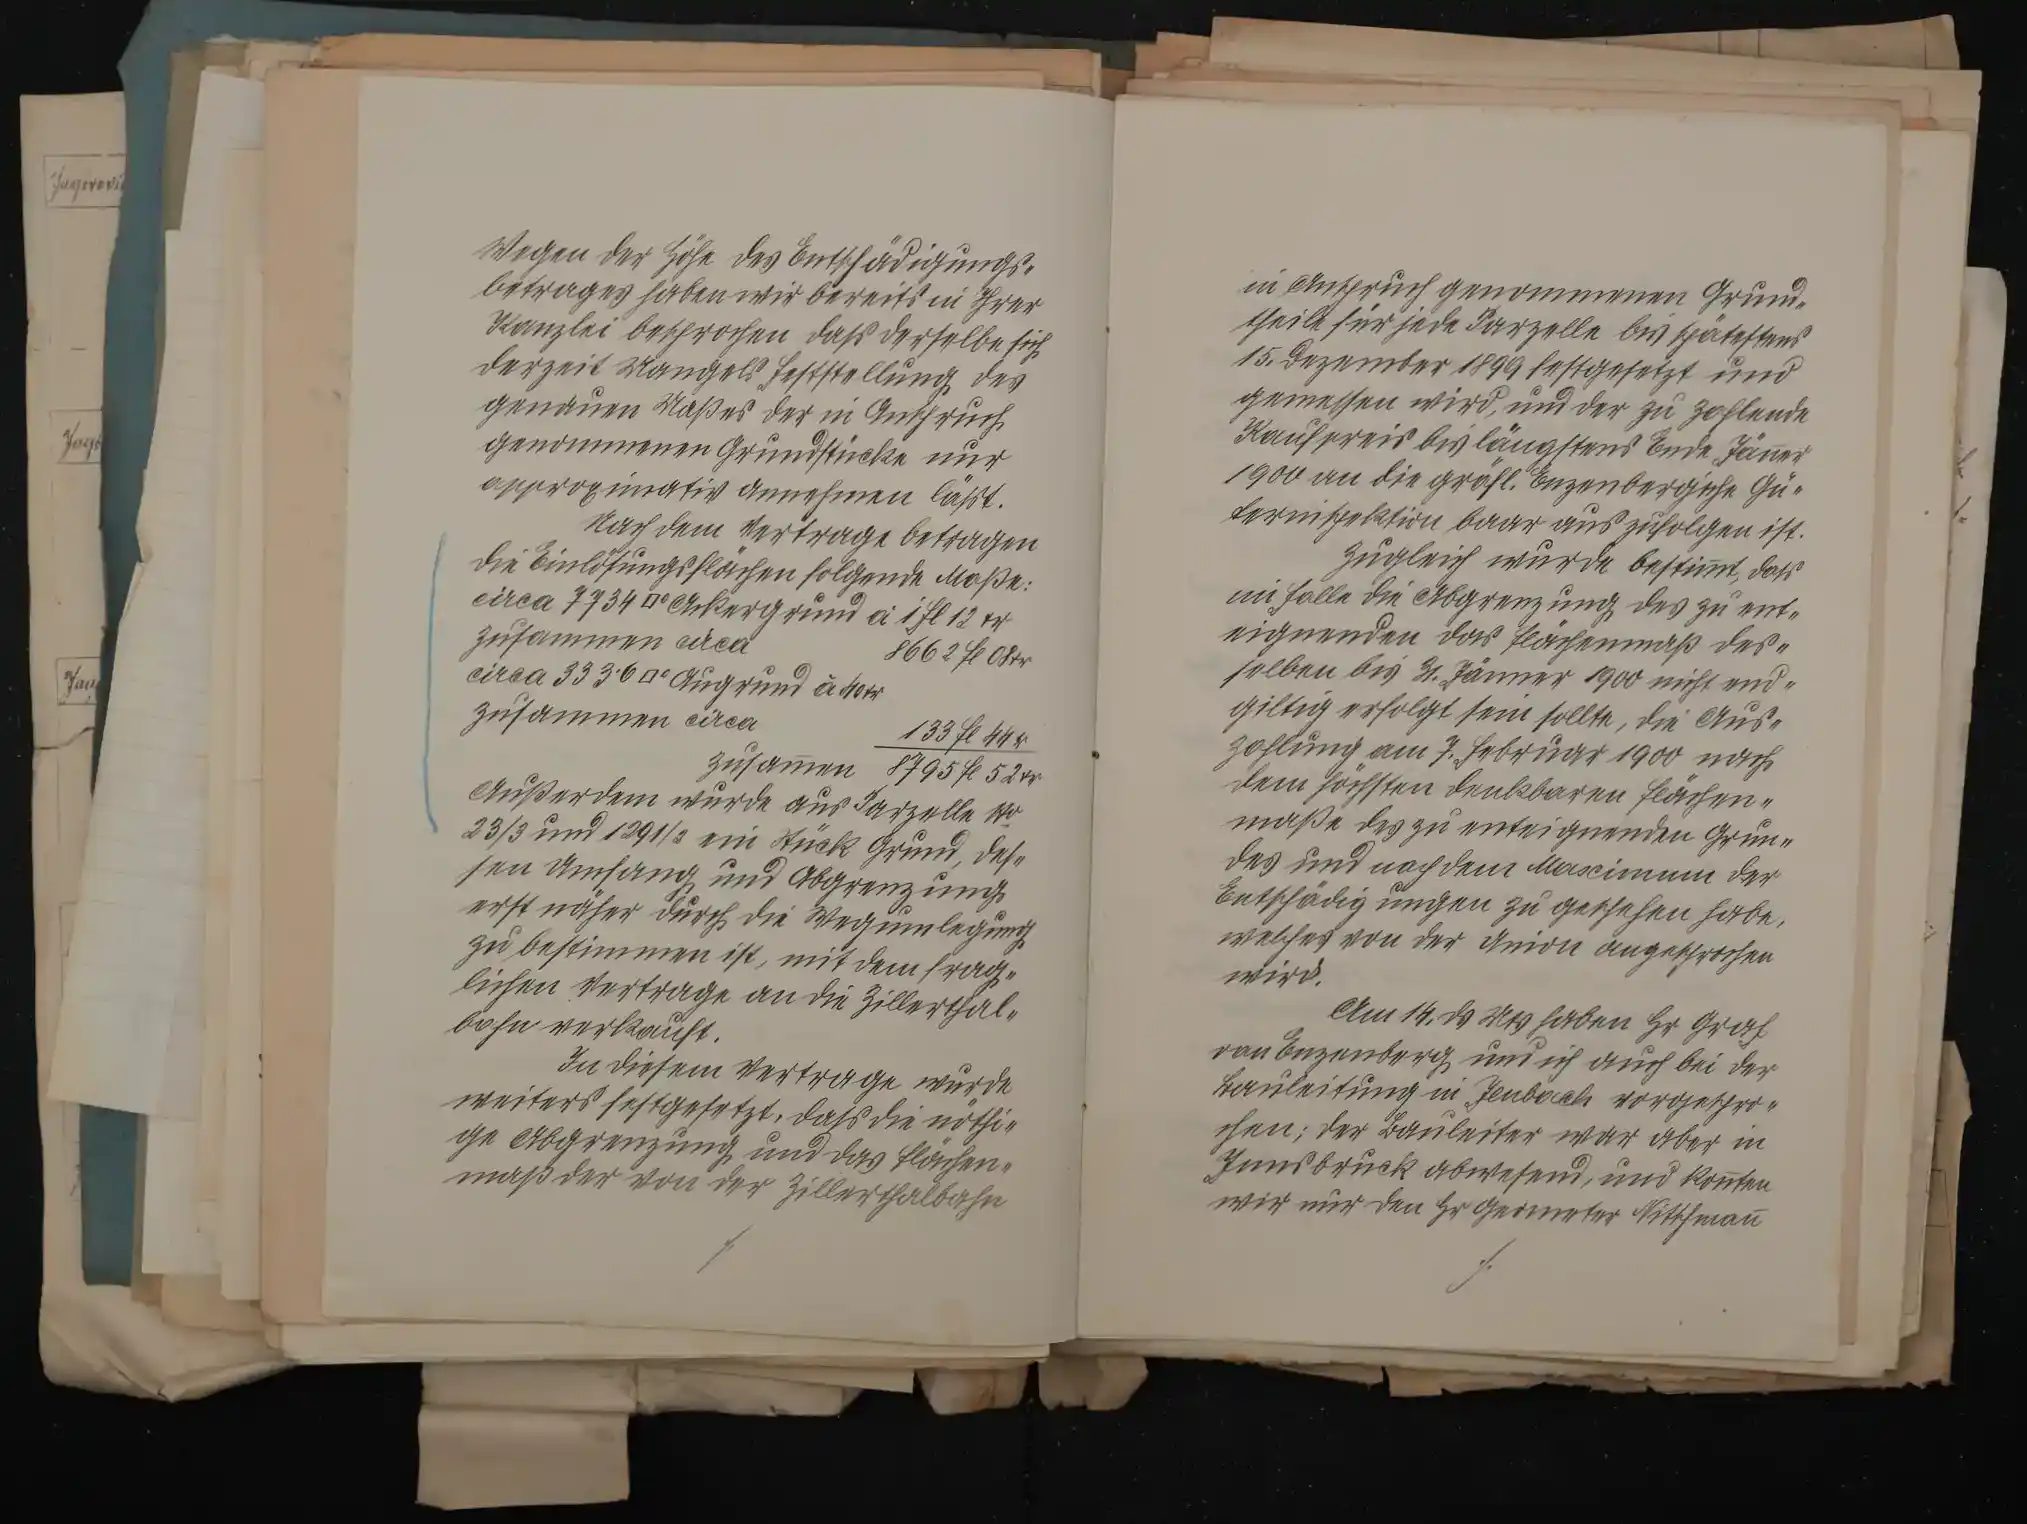 Wegen der Höhe des Entschädigungs-
betrages haben wir bereits in Ihrer
Kanzlei besprochen dass derselbe sich
derzeit Mangels Feststellung des
genauen Maßes der in Anspruch
genommenen Grundstücke nur
approximativ annehmen läßt.
Nach dem Vertrage betragen
die Einlösungsflächen folgende Maße:
circa 7734 □° Ackergrund à 1 fl 12 kr
zusammen circa 8662 fl 08 kr
circa 333·6 □° Augrund à 40 kr
zusammen circa
133 fl 44 kr
zusam̅en 8795 fl 52 kr
Außerdem wurde aus Parzelle No
23/3 und 1291/3 ein Stück Grund, des-
sen Umfang und Abgrenzung
erst näher durch die Wegumlegung
zu bestimmen ist, mit dem frag-
lichen Vertrage an die Zillerthal-
bahn verkauft.
In diesem Vertrage wurde
weiters festgesetzt, dass die nöthi-
ge Abgrenzung und das Flächen-
maß der von der Zillerthalbahn
in Anspruch genommenen Grund-
theile für jede Parzelle bis spätestens
15. Dezember 1899 festgesetzt und
gemessen wird, und der zu zahlende
Kaufpreis bis längstens Ende Jän̅er
1900 an die gräfl. Enzenbergsche Gü-
terinspektion baar auszufolgen ist.
Zugleich wurde bestim̅t, dass
im Falle die Abgrenzung des zu ent-
eignenden das Flächenmaß des-
selben bis 31. Jänner 1900 nicht end-
giltig erfolgt sein sollte, die Aus-
zahlung am 7. Februar 1900 nach
dem höchsten denkbaren Flächen-
maße des zu enteignenden Grun-
des und nach dem Maximum der
Entschädigungen zu geschehen habe,
welches von der Union angesprochen
wird.
Am 14. ds Mts haben Hr Graf
von Enzenberg und ich auch bei der
Bauleitung in Jenbach vorgespro-
chen; der Bauleiter war aber in
Innsbruck abwesend, und kon̅ten
wir nur den Hr Geometer Nitschman̅